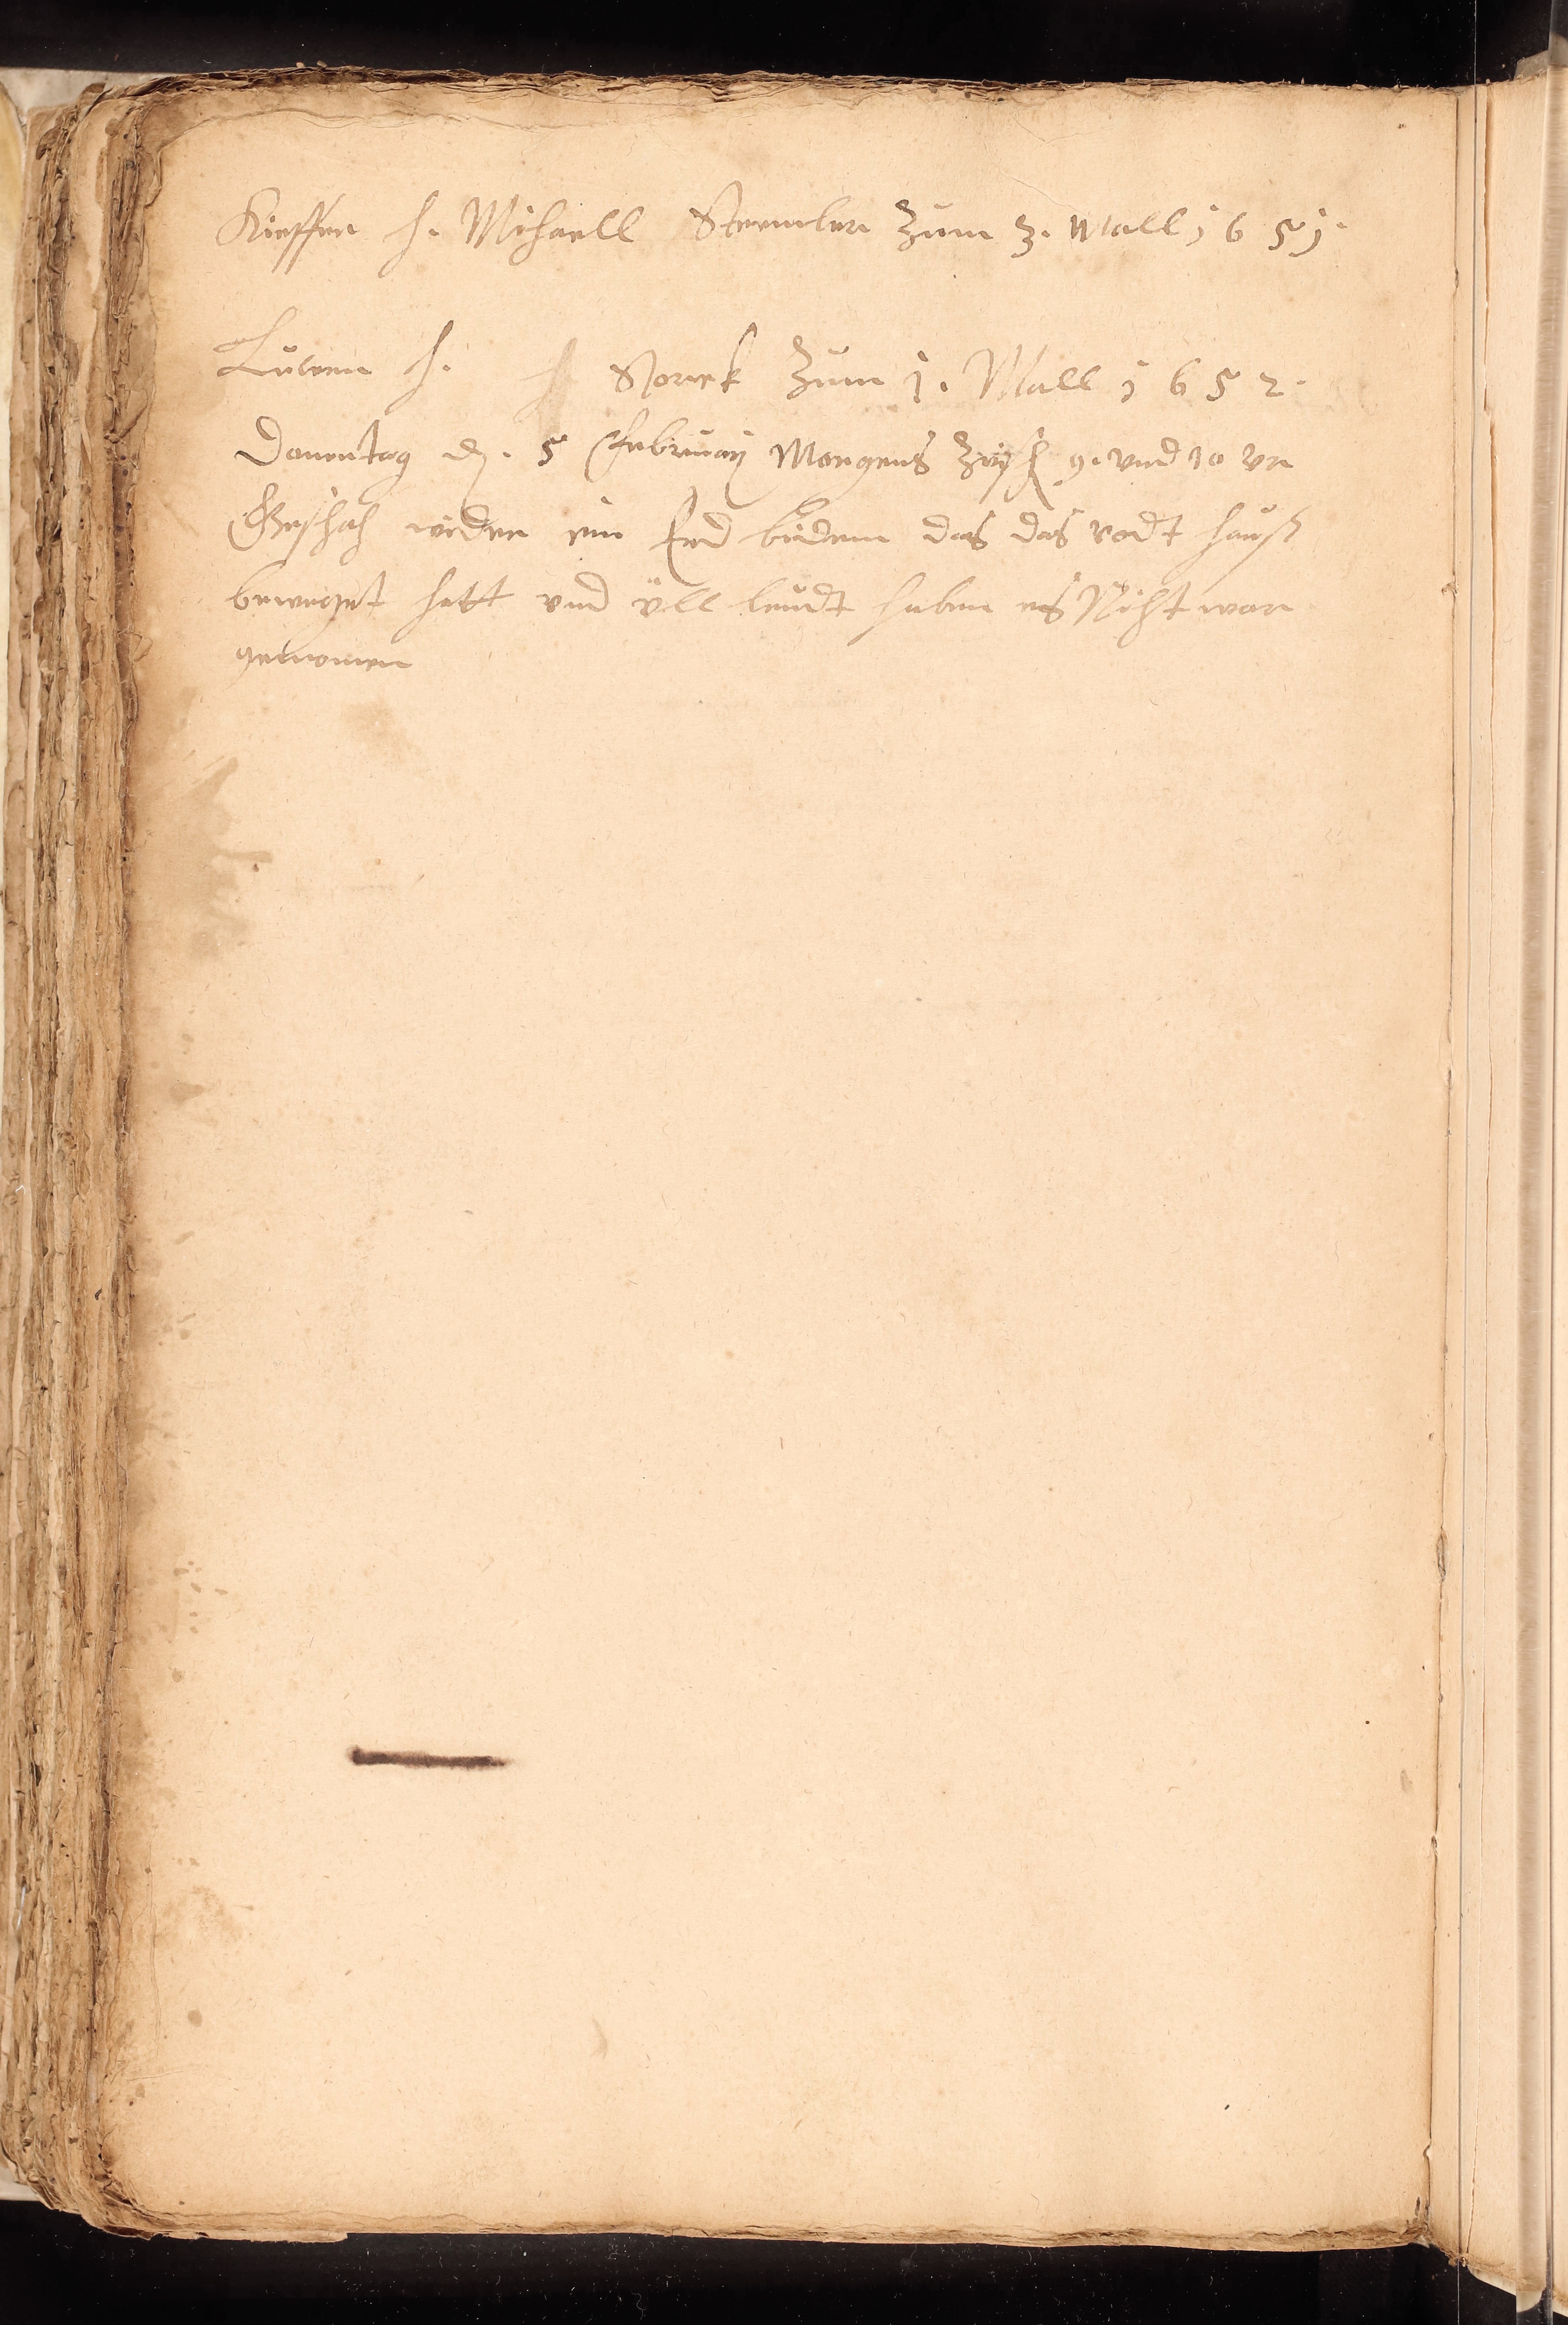 Kieffer h. Michaell Stremler Zum 3. Mall 1651.
Luwen h. h Storck Zum 1. Mall 1652.
Donentag d. 5 februarj Morgens Zwisch 9. und 10 vr
Geschah wider ein Erd bidem das das rodt hauß
beweget hatt und vll leudt haben es Nicht war
genomen